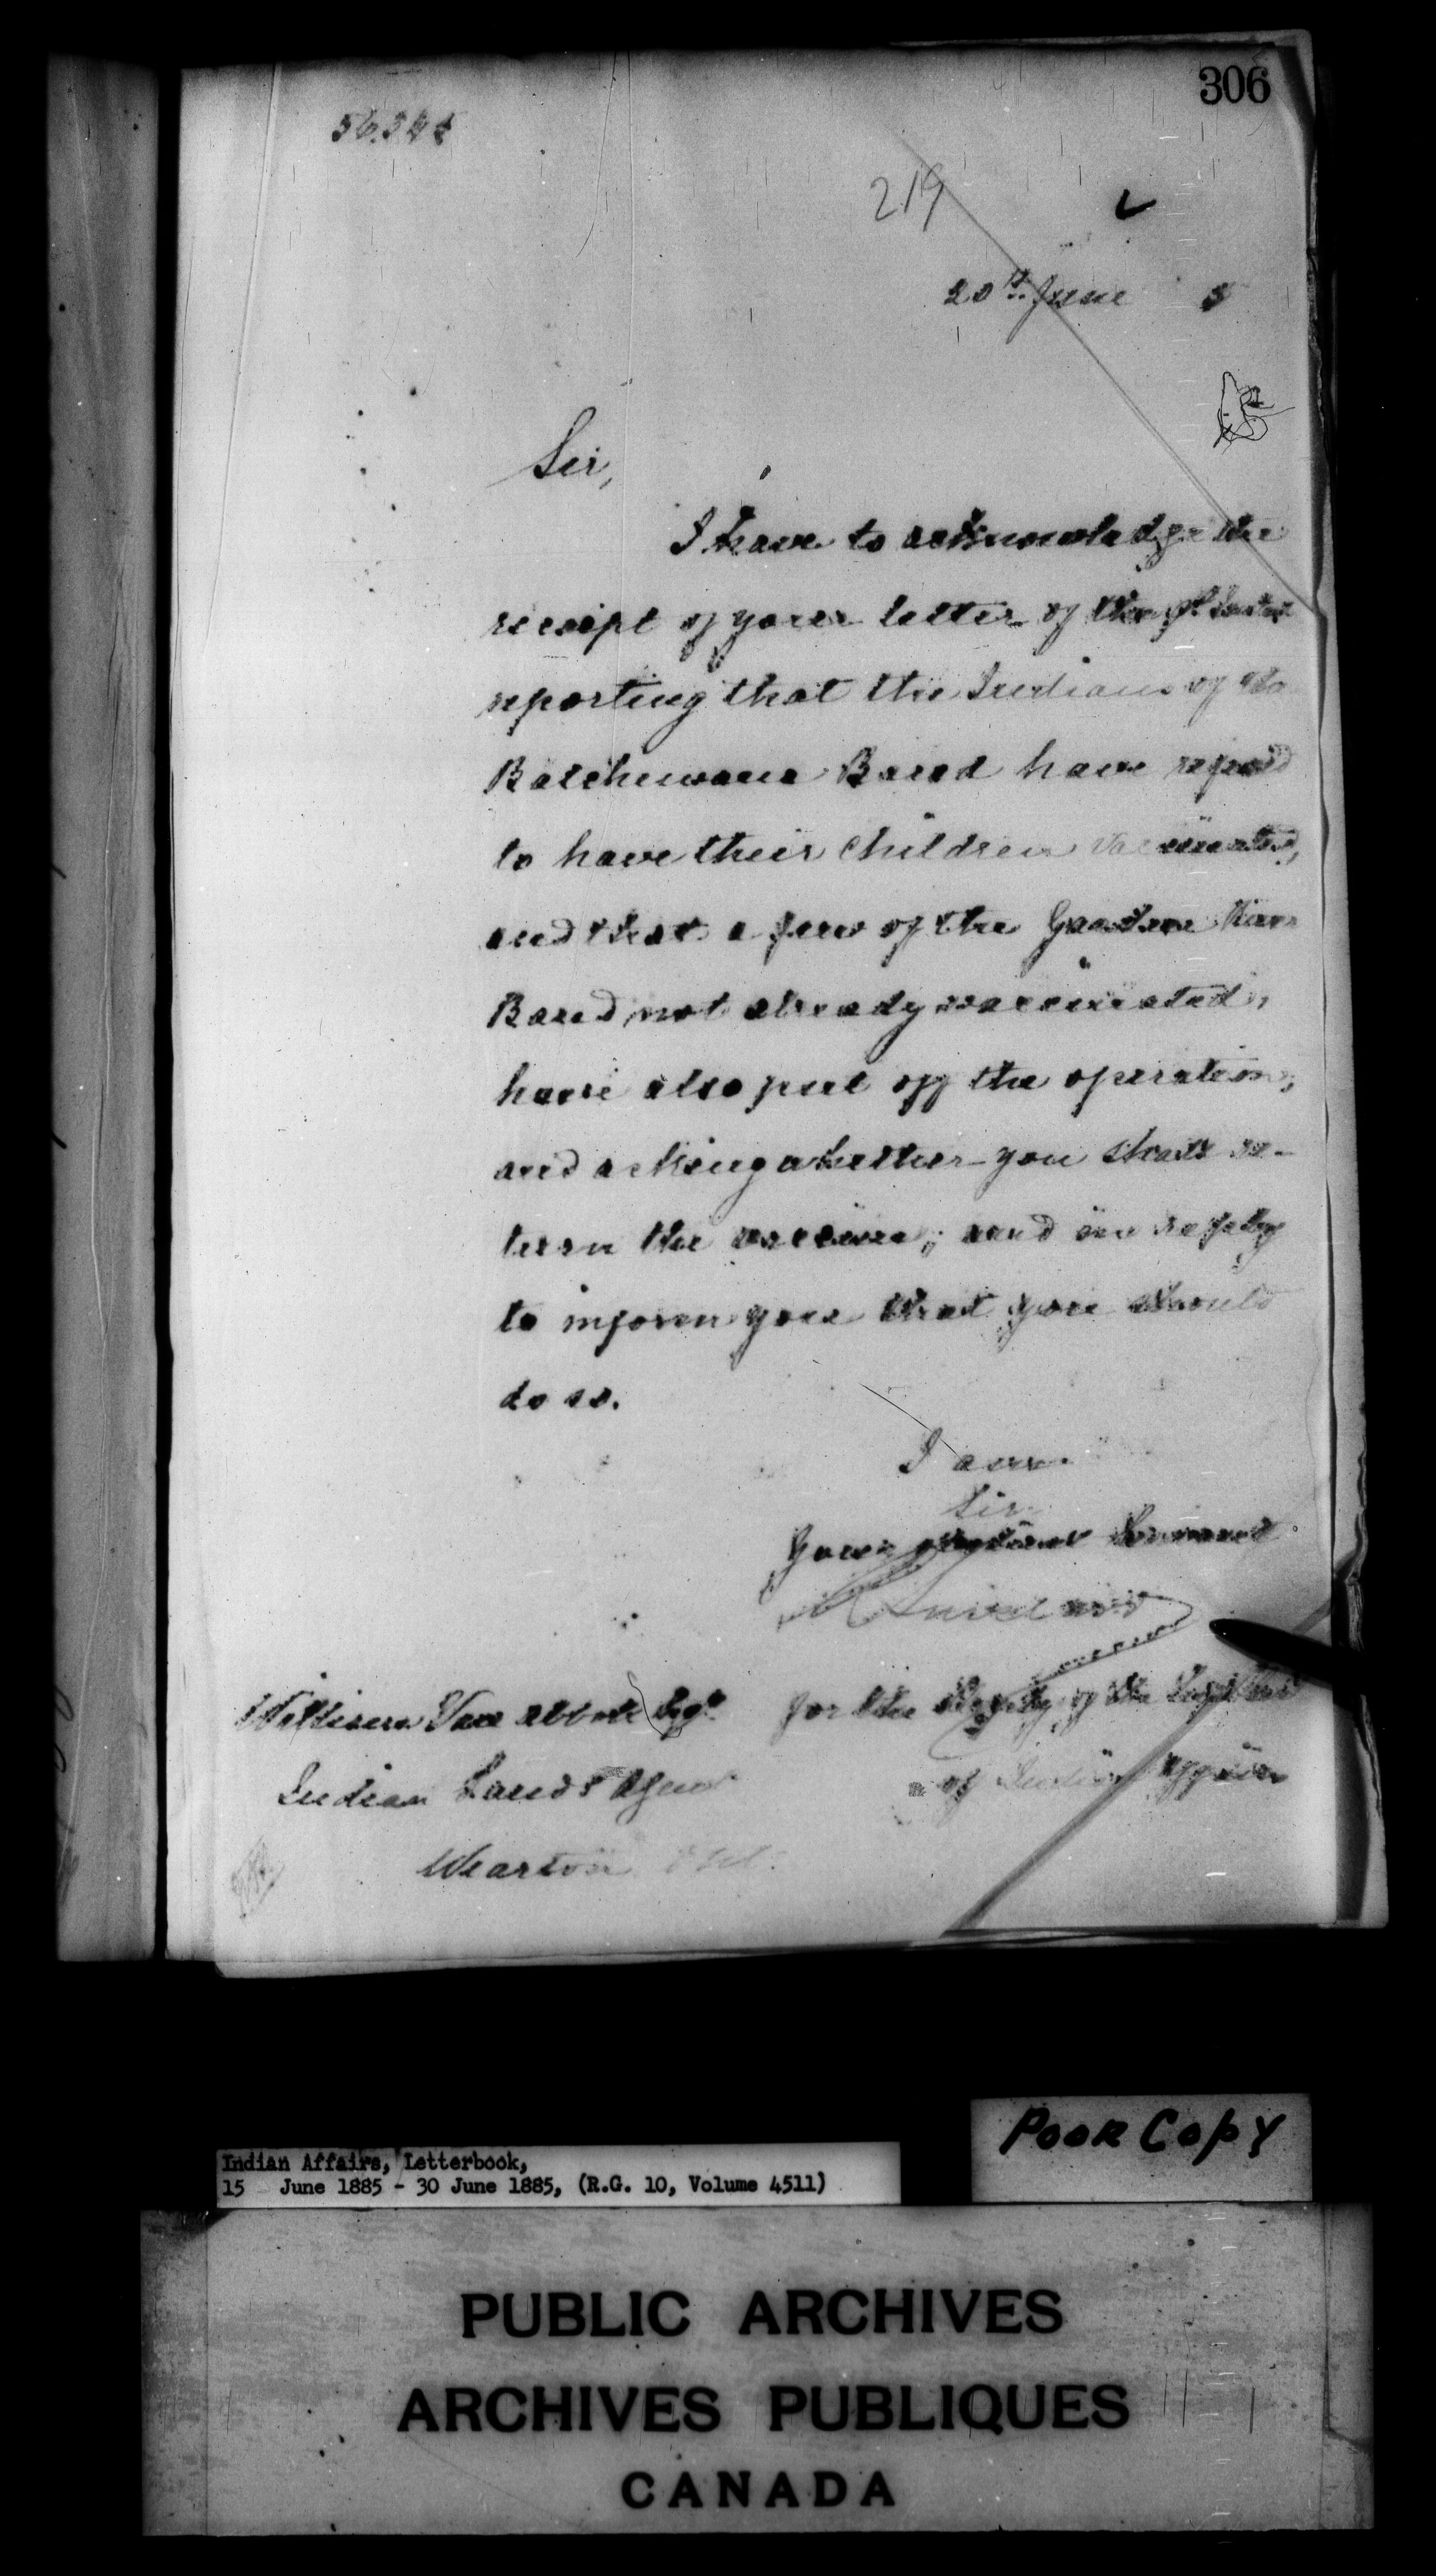 306
219
20th June 5
Sir,
I have to acknowledge the
receipt of your letter of the
reporting that the Indians of the
Batchewana Band have
to have their children vaccinated,
and that a few of the Garden River
Band not already vaccinated,
have also put off the operation,
and asking whether you shall re-
turn the vaccine; and in reply
to inform you that you should
do so.
I am.
Sir
Your obedient Servant
William Van Abbott Esqr for the Deputy of the Supt Genl
Indian Lands Agent of Indian Affairs
Wiarton Ont.
Poor Copy
Indian Affairs, Letterbook,
15 June 1885 - 30 June 1885, (R.G. 10, Volume 4511)
PUBLIC ARCHIVES
ARCHIVES PUBLIQUES
CANADA